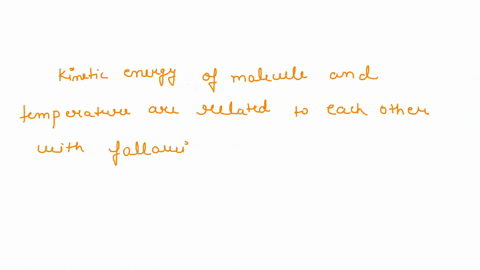 Kinetic energy of molecule and
temperature are related to each other
with followi